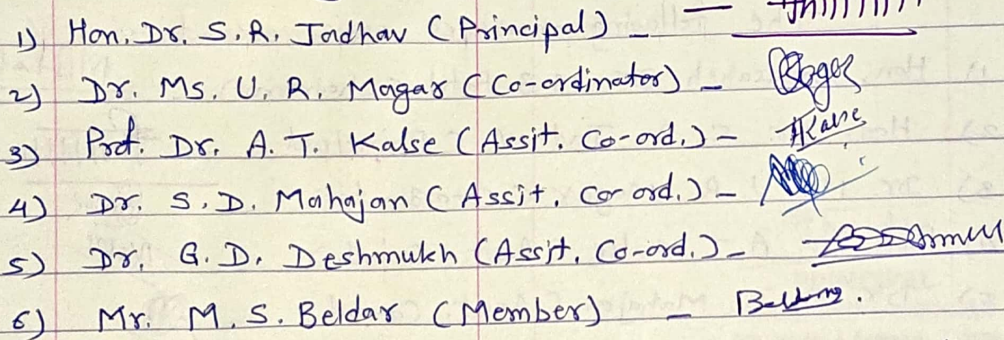 1) Hon. Dr. S. R. Jadhav (Principal) –
2) Dr. Ms. U. R. Magar (Co-ordinator) –
3) Prof. Dr. A. T. Kalse (Assit. Co-ord.) – Kalse
4) Dr. S. D. Mahajan (Assit. Co-ord.) –
5) Dr. G. D. Deshmukh (Assit. Co-ord.) –
6) Mr. M. S. Beldar (Member) –